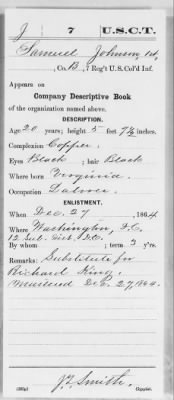 J 7 U.S.C.T.
Samuel Johnson, 1st,
, Co. B, 7 Reg't U. S. Col'd Inf.
Appears on
Company Descriptive Book
of the organization named above.
DESCRIPTION.
Age 20 years; height 5 feet 7½ inches.
Complexion Copper.
Eyes Black; hair Black
Where born Virginia.
Occupation Laborer.
ENLISTMENT.
When Dec. 27, 1864
Where Washington, D.C.
12 Sub. Dist. D.C.
By whom ; term 3 y'rs.
Remarks: Substitute for
Richard King.
Mustered Dec. 27, 1864.
J. Smith.
Copyist.